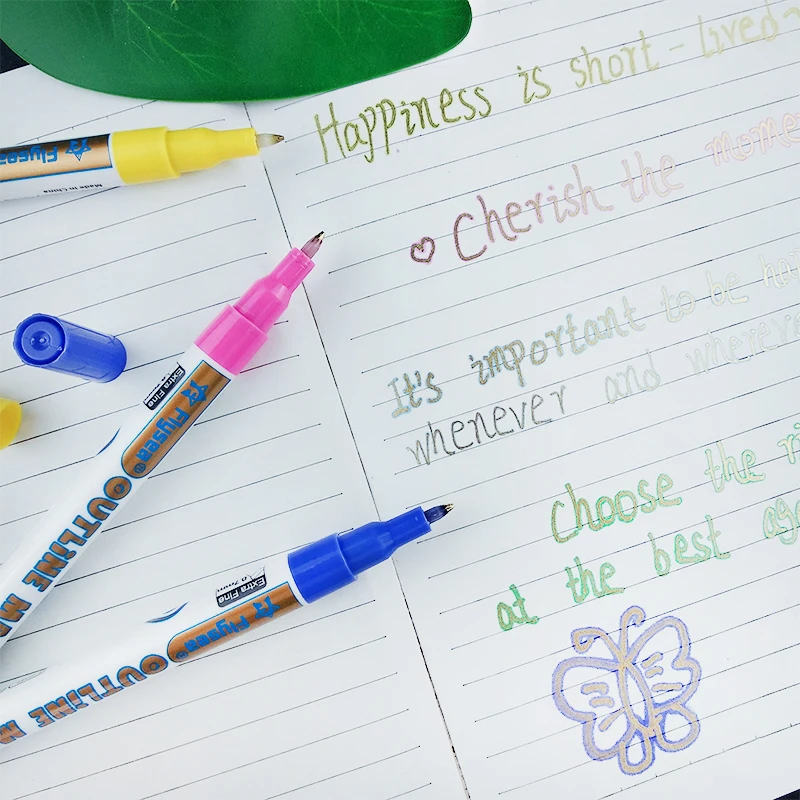 Happiness is short-lived~
Cherish the mome
It's important to be ha
whenever and whereve
Choose the ri
at the best age
Flysea
Made in China
Extra Fine
Flysea®
OUTLINE M
Extra Fine
0.7mm
Flysea®
OUTLINE M